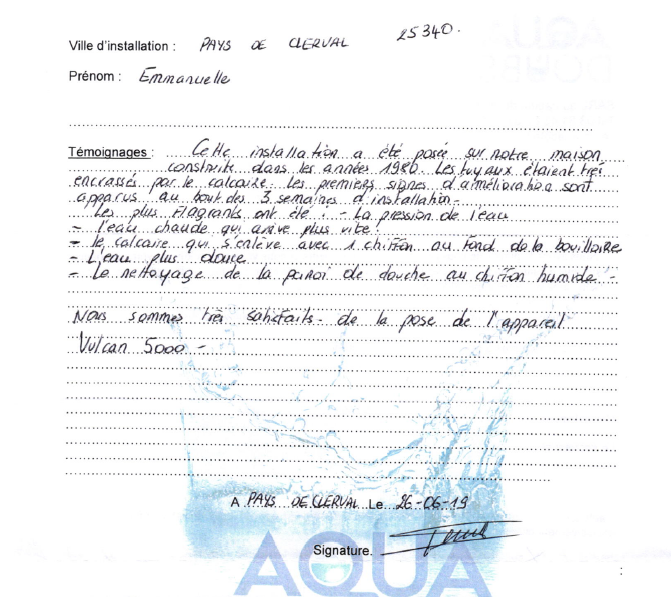 Ville d'installation : PAYS DE CLERVAL 25340.
Prénom : Emmanuelle
Témoignages : Cette installation a été posée sur notre maison
construite dans les années 1980. Les tuyaux étaient très
encrassés par le calcaire. les premiers signes d'amélioration sont
apparus au bout des 3 semaines d'installation-
Les plus flagrants ont été : - La pression de l'eau
- l'eau chaude qui arrive plus vite!
- le calcaire qui s'enlève avec 1 chiffon au fond de la bouilloire
- L'eau plus douce
- Le nettoyage de la paroi de douche au chiffon humide -
Nous sommes très satisfaits- de la pose de l'appareil
Vulcan 5000 -
A PAYS DE CLERVAL Le 26-06-19
Signature.
AQUA